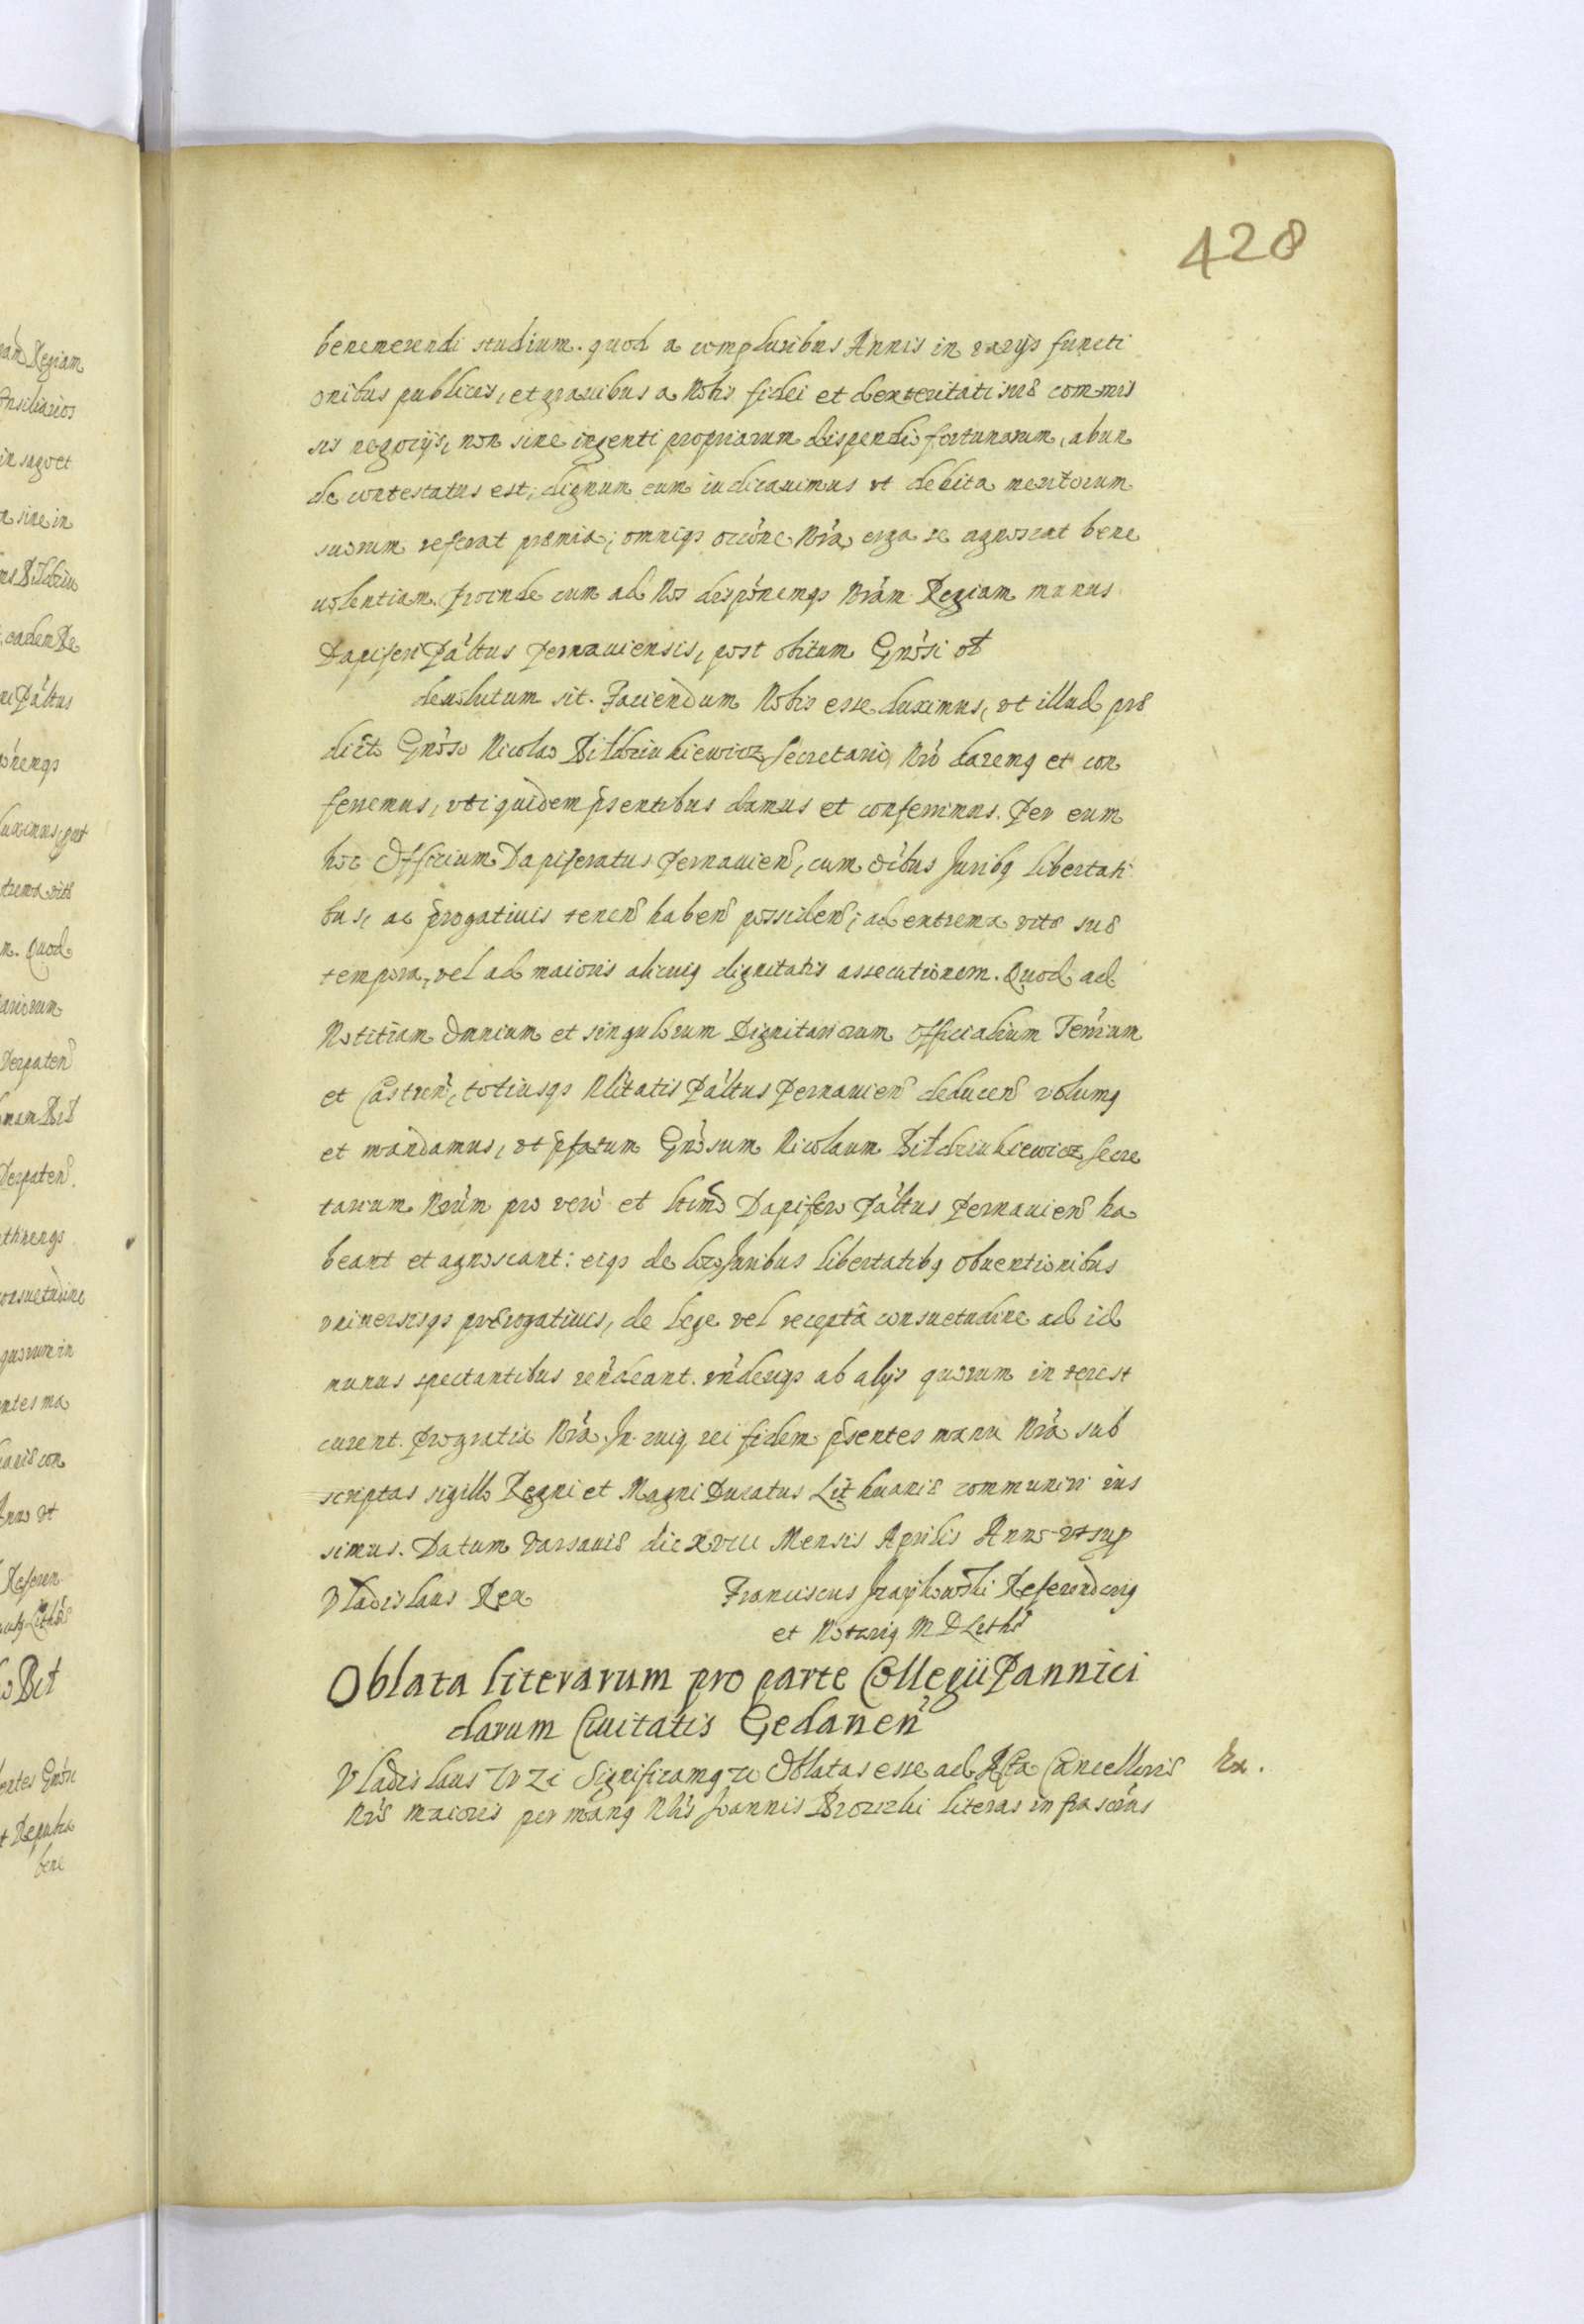 428
benemerendi studium. quod a compluribus Annis in varijs functi
onibus publicis, et gravibus a Nobis fidei et dexteritati suæ commis
sis negocijs, non sine ingenti propriarum dispendio fortunarum, abun
de contestatus est, dignum eum iudicavimus vt debita meritorum
suorum referat præmia; omniqs occône Nrâ erga se agnoscat bene
uolentiam. Proinde cum ad Nos dispônemqs Nrâm Regiam munus
Dapiferi Pâltus Pernaviensis, post obitum Gnôsi olt
devolutum sit. Faciendum Nobis esse duximus, vt illud præ
dicto Gnôso Nicolao Dildziukiewicz Secretario Nrô daremq et con
ferremus, vti quidem pñsentibus damus et conferrimus. Per eum
hoc Officium Dapiferatus Pernavieñ, cum oîbus Juribq libertati
bus, ac progativis teneñ habeñ possideñ; ad extrema vitæ suæ
tempora, vel ad maioris alicuiq dignitatis assecutionem. Quod ad
Notitiam Omnium et singulorum Dignitariorum Officialium Terrûm
et Castreñ, totiusqs Nlitatis Pâltus Pernavieñ deduceñ volumq
et mandamus, vt pfatum Gnôsum Nicolaum Dildziukiewicz Secre
tarium Nrûm pro vero et ltimo Dapifero Pâltus Pernavieñ ha
beant et agnoscant: eiqs de loco Juribus libertatibq obventionibus
vniversisqs prærogativis, de lege vel receptâ consuetudine ad id
munus spectantibus rêndeant. rnderiqs ab alijs quorum interest
curent. pro gratia Nrâ. In cuiq rei fidem pñsentes manu Nrâ sub
scriptas sigillo Regni et Magni Ducatus Lithuaniæ communiri ius
simus. Datum Varsaviæ die XVIII Mensis Aprilis Anno vt sup
Vladislaus Rex Franciscus Isaykowski Referendariq
et Notariq M D Lithæ
Oblata literarum pro parte Collegii Pannici
darum Civitatis Gedaneñ
Vladislaus IV Significamq Oblatas esse ad Acta Cancellariæ Ex.
Nræ maioris per mânq Nlis Joannis literas infrascrâs